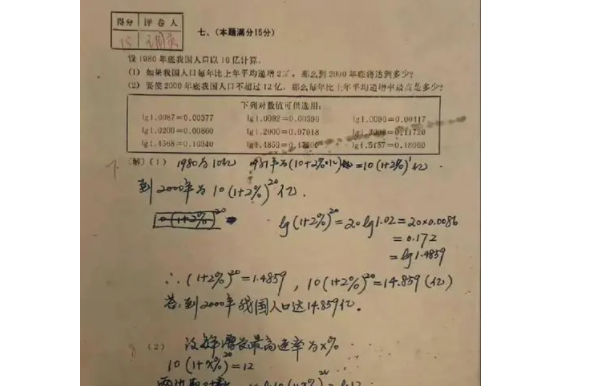 得分 评卷人
15
七、(本题满分15分)
设1980年底我国人口以10亿计算.
(1) 如果我国人口每年比上年平均递增2%,那么到2000年底将达到多少?
(2) 要使2000年底我国人口不超过12亿,那么每年比上年平均递增率最高是多少?
下列对数值可供选用:
lg1.0087=0.00377 lg1.0092=0.00396 lg1.0096=0.00417
lg1.0200=0.00860 lg1.2000=0.07918
lg1.4568=0.16340 lg1.4859=0.17200 lg1.5157=0.18060
(解) (1) 1980为10亿 1981年为(10+2%·10)=10(1+2%)¹亿
到2000年为10(1+2%)²⁰亿.
(1+2%)²⁰
lg(1+2%)²⁰=20lg1.02=20×0.0086
=0.172
=lg1.4859
∴(1+2%)²⁰=1.4859, 10(1+2%)²⁰=14.859(亿)
答:到2000年我国人口达14.859亿.
(2) 设每年增长最高速率为x%
10(1+x%)²⁰=12